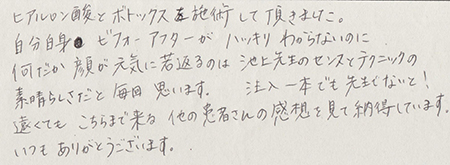 ヒアルロン酸とボトックスを施術して頂きました。
自分自身 ビフォーアフターが ハッキリ わからないのに
何だか 顔が 元気に若返るのは 池上先生のセンスとテクニックの
素晴らしさだと 毎回 思います。 注入一本でも先生でないと!
遠くても こちらまで来る 他の患者さんの感想を見て納得しています。
いつも ありがとうございます。